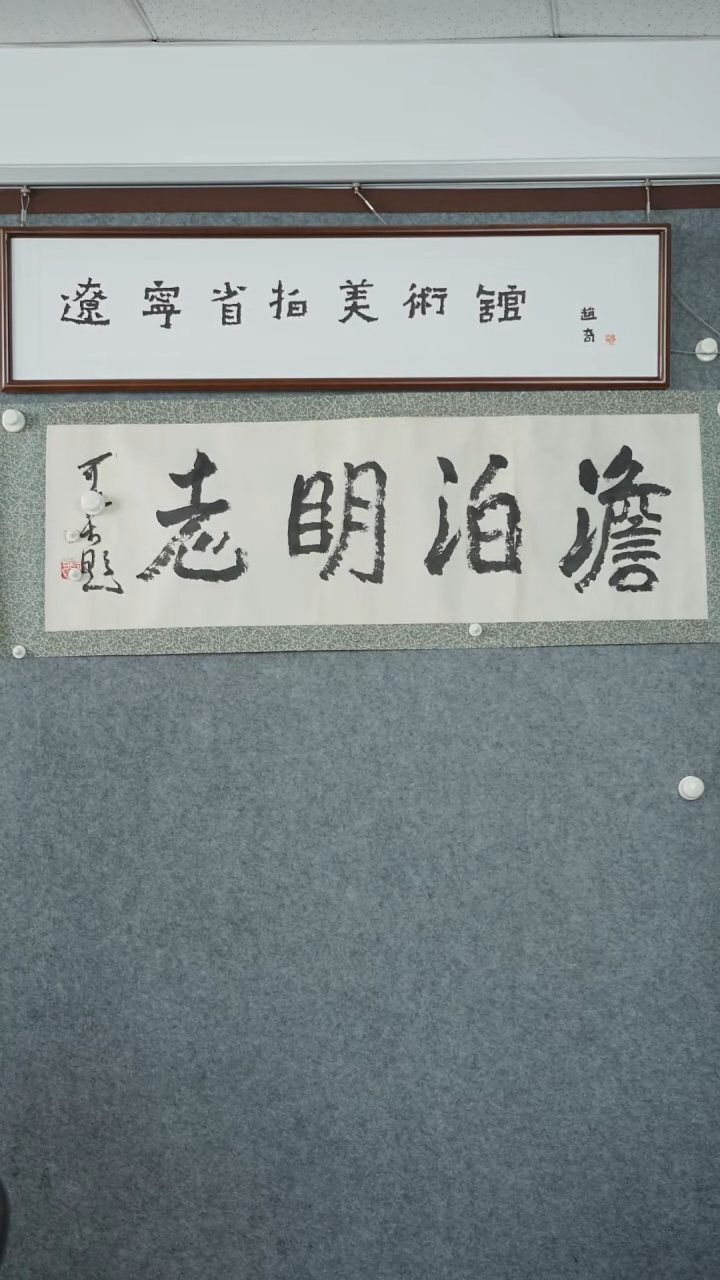 遼寧省拍美術館
趙奇
澹泊明志
可
題